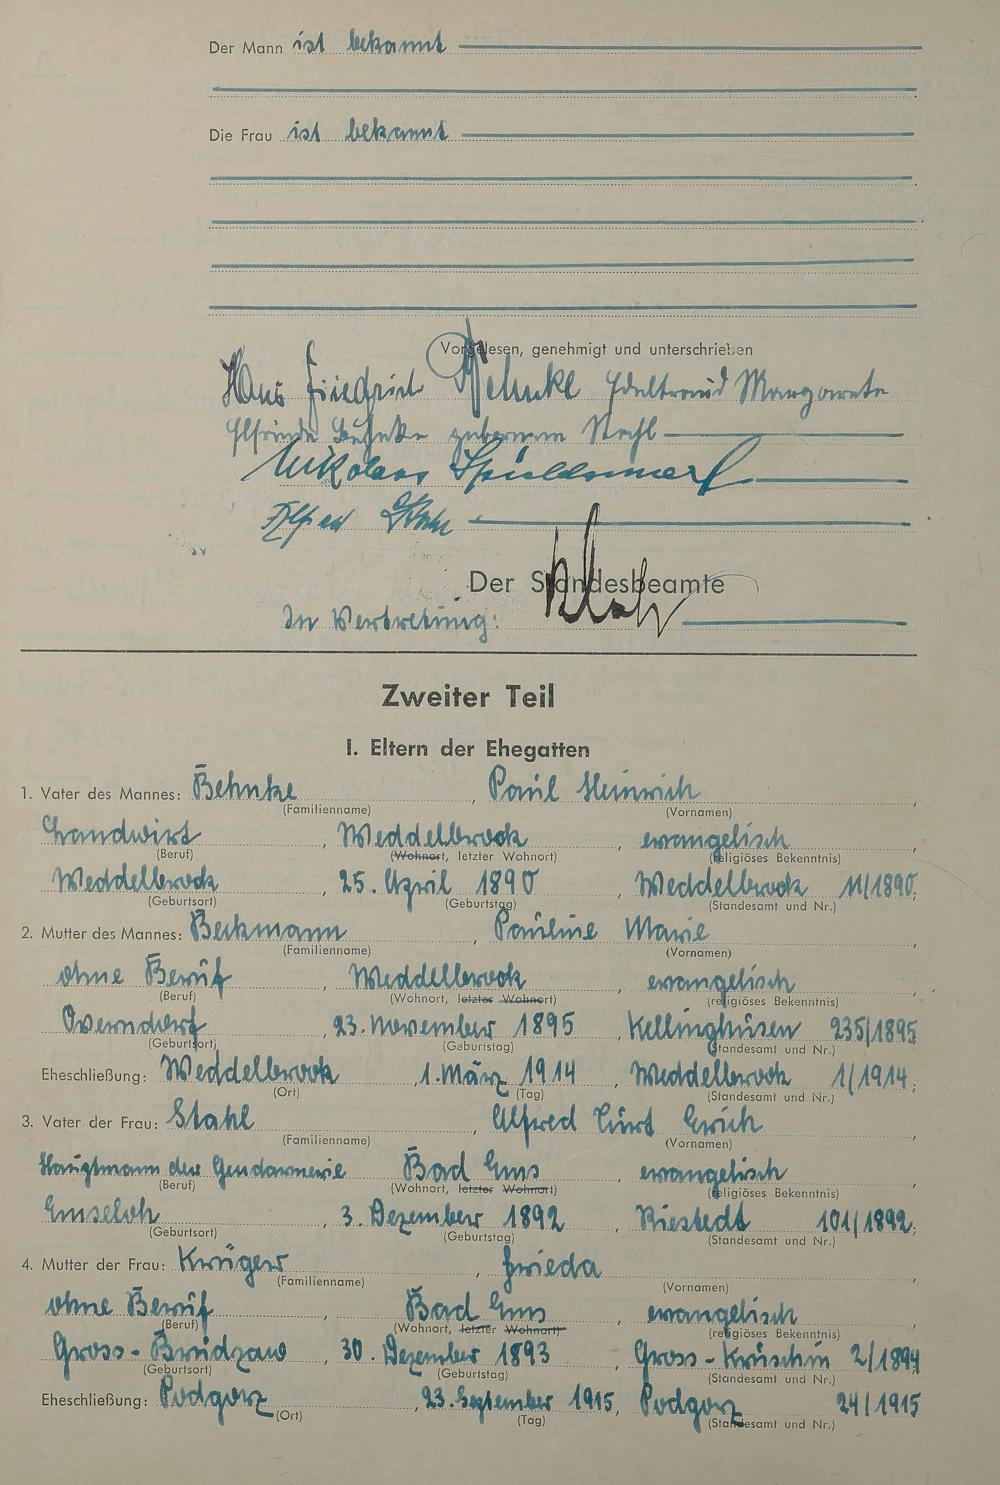 Der Mann ist bekannt
Die Frau ist bekannt
Vorgelesen, genehmigt und unterschrieben
Hans Friedrich Behnke Edeltraud Margarete
Elfriede Behnke geborene Stahl
Nikolaus
Alfred
Der Standesbeamte
In Vertretung:
Zweiter Teil
I. Eltern der Ehegatten
1. Vater des Mannes: Behnke, Paul Heinrich,
(Familienname) (Vornamen)
Landwirt, Weddelbrook, evangelisch,
(Beruf) (Wohnort, letzter Wohnort) (religiöses Bekenntnis)
Weddelbrook, 25. April 1890, Weddelbrook 11/1890;
(Geburtsort) (Geburtstag) (Standesamt und Nr.)
2. Mutter des Mannes: Beckmann, Pauline Marie,
(Familienname) (Vornamen)
ohne Beruf, Weddelbrook, evangelisch,
(Beruf) (Wohnort, letzter Wohnort) (religiöses Bekenntnis)
Overndorf, 23. November 1895, Kellinghusen 235/1895
(Geburtsort) (Geburtstag) (Standesamt und Nr.)
Eheschließung: Weddelbrook, 1. März 1914, Weddelbrook 1/1914;
(Ort) (Tag) (Standesamt und Nr.)
3. Vater der Frau: Stahl, Alfred Curt Erich,
(Familienname) (Vornamen)
Hauptmann der Gendarmerie Bad Ems, evangelisch,
(Beruf) (Wohnort, letzter Wohnort) (religiöses Bekenntnis)
Emseloh, 3. Dezember 1892, Riestedt 101/1892;
(Geburtsort) (Geburtstag) (Standesamt und Nr.)
4. Mutter der Frau: Krüger, Frieda,
(Familienname) (Vornamen)
ohne Beruf, Bad Ems, evangelisch,
(Beruf) (Wohnort, letzter Wohnort) (religiöses Bekenntnis)
Gross-Brudzaw, 30. Dezember 1893, Gross-Kruschin 2/1894
(Geburtsort) (Geburtstag) (Standesamt und Nr.)
Eheschließung: Podgorz, 23. September 1915, Podgorz 24/1915
(Ort) (Tag) (Standesamt und Nr.)